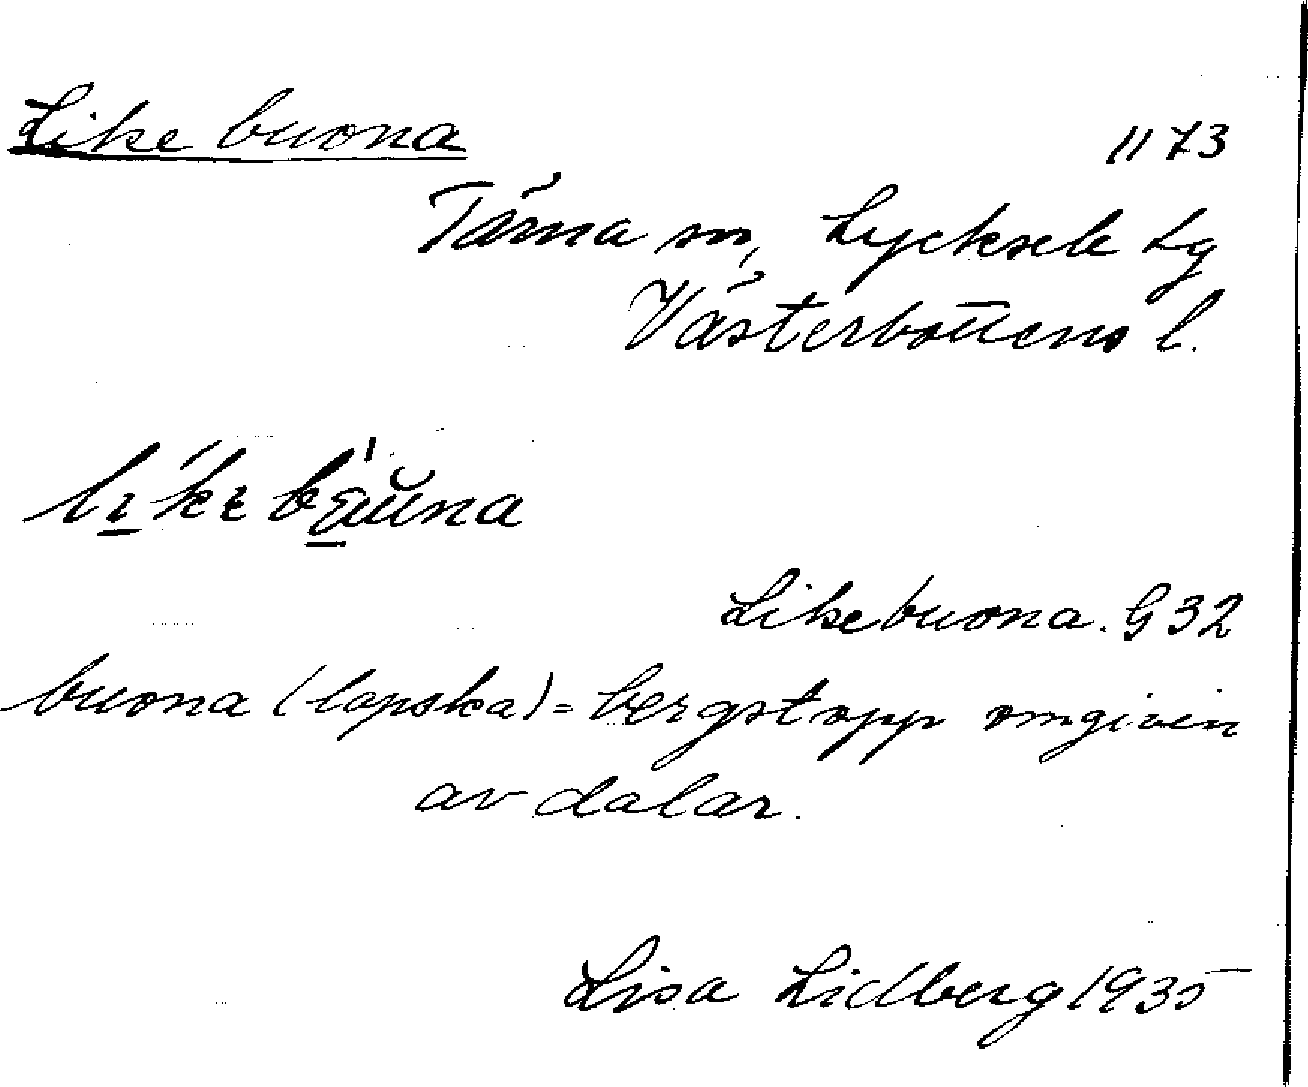 Like buona 1173
Tärna sn, Lycksele Lg
Västerbottens l.
Likebuona. G 32
buona (lapska) = bergstopp omgiven
av dalar.
Lisa Lidberg 1935